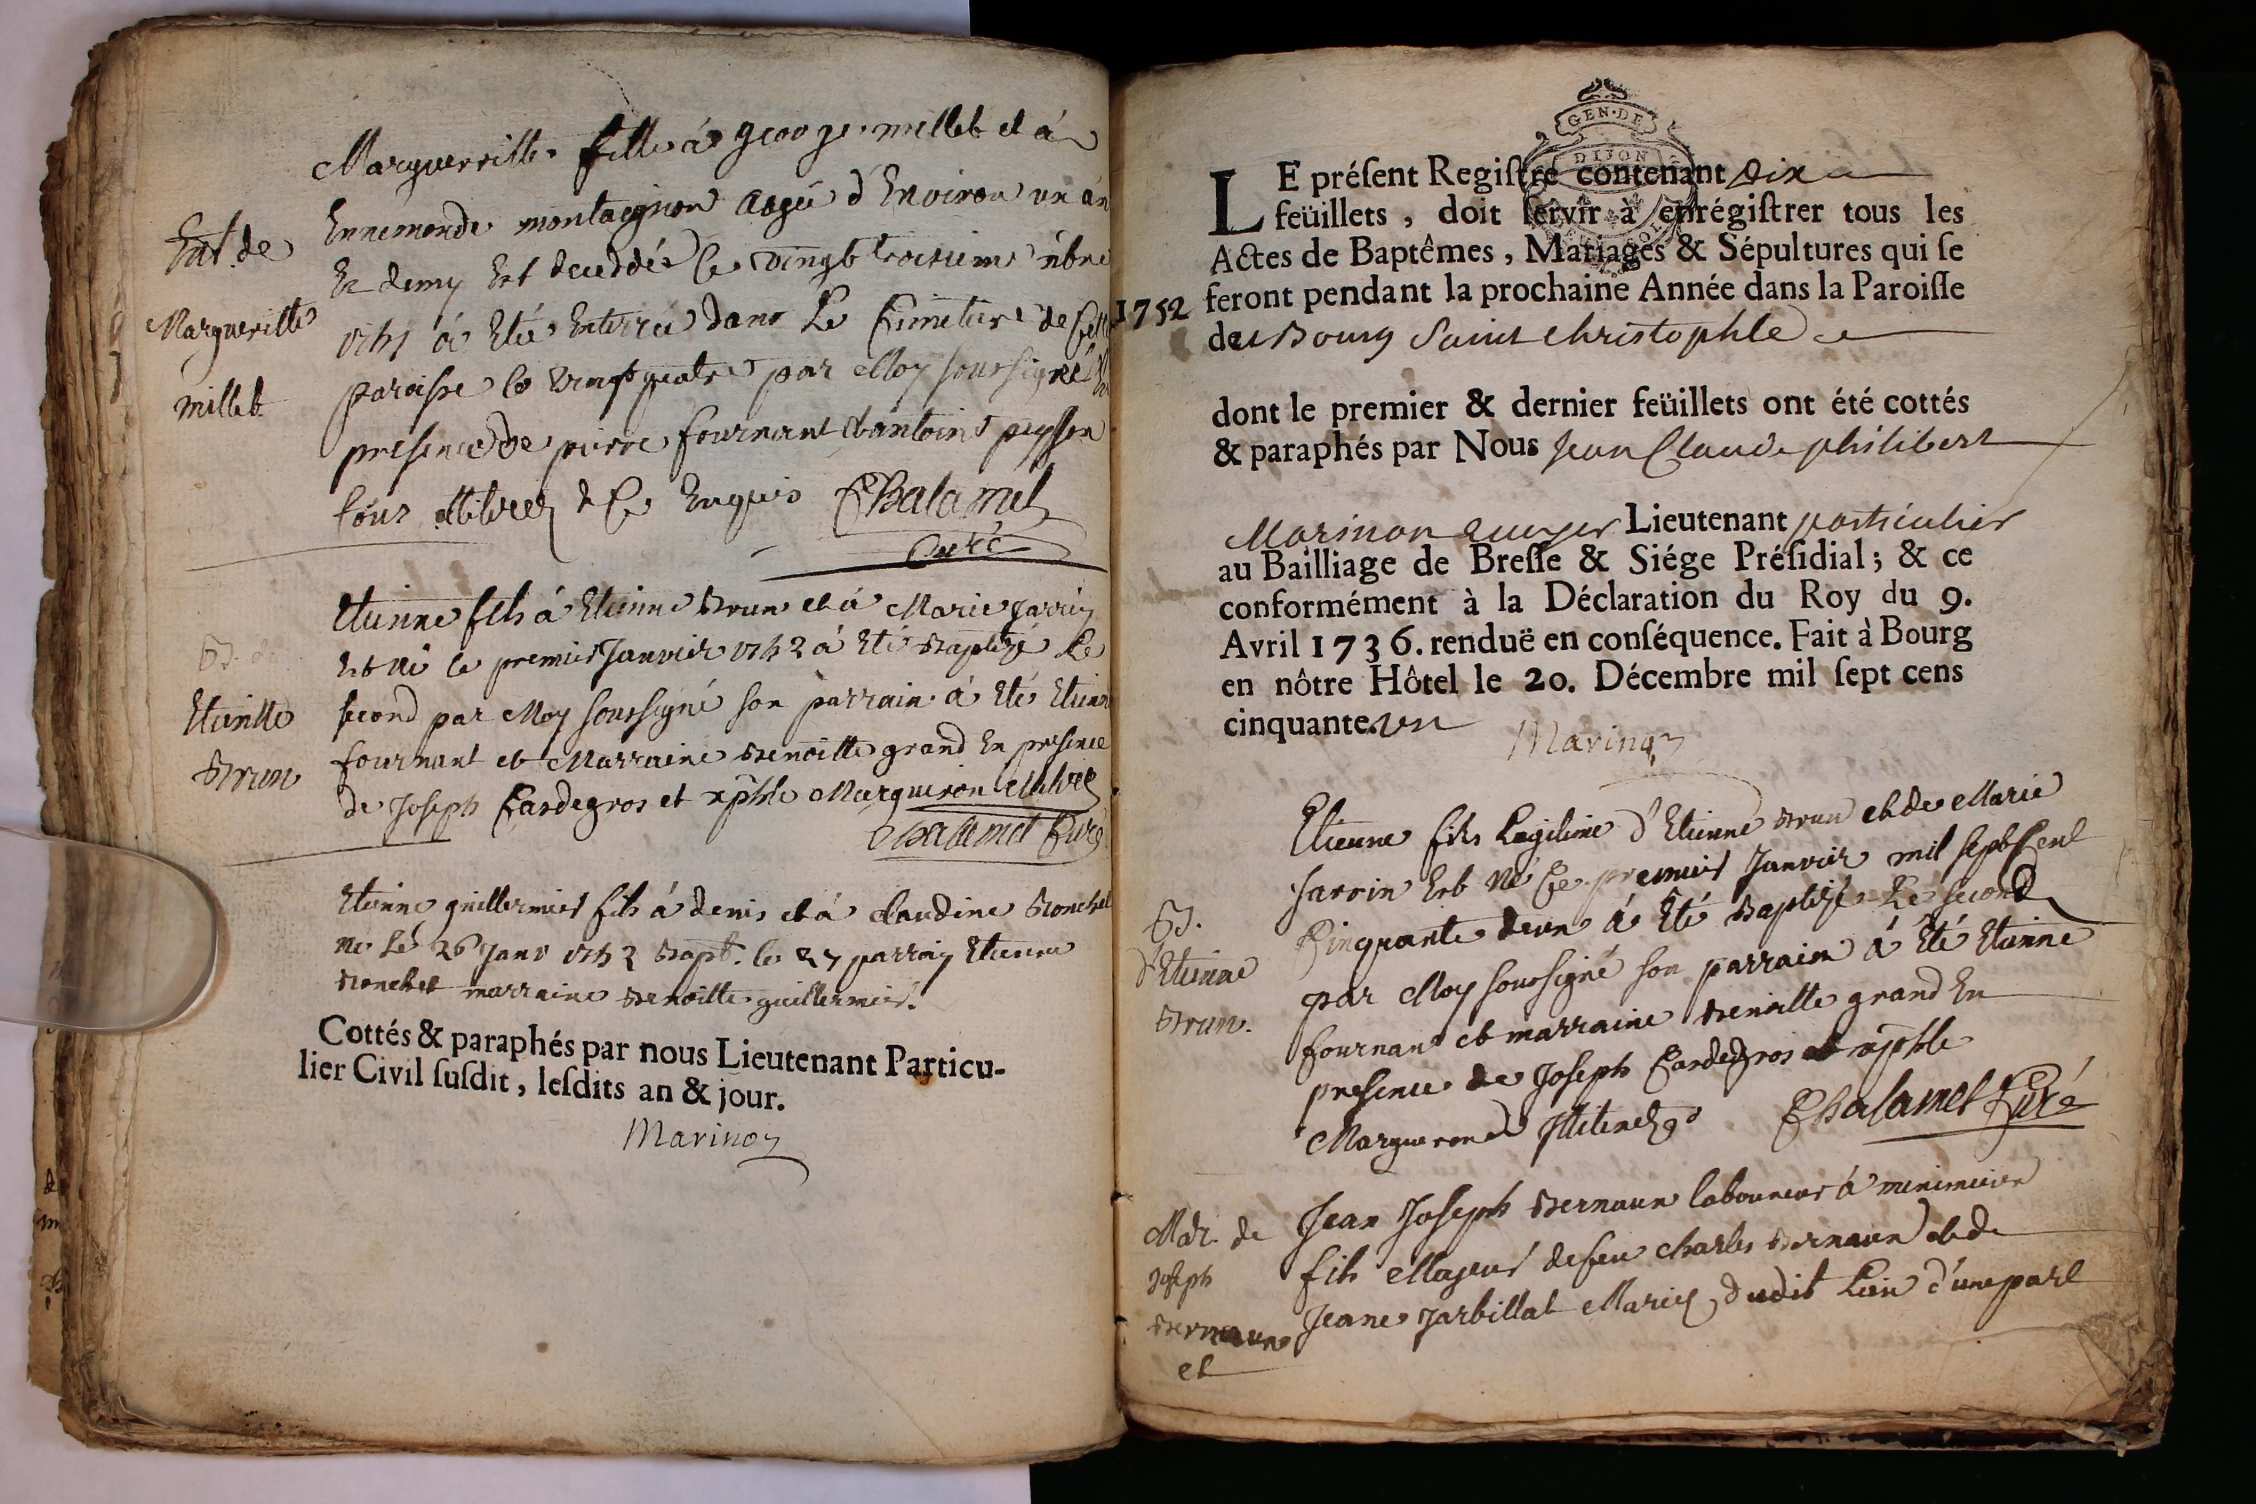 Marguerritte fille á george millet et á
Ennemonde montagnon aagée d'Environ un an
Ent. de
Et demy Est decedée le vingt troisieme 9bre
Margueritte
1751 á Eté Enterrée dans Le Cimetiere de Cette
millet
paroisse le vingt quatre par Moy soussigné En
presence de pierre fournant et antoine peysson
tous illitérés de Ce Enquis Chalamel
Curé
Etienne fils á Etienne Brun et á Marie jarrin
B. de
Est né le premier Janvier 1752 á Eté Baptizé Le
Etienne
second par Moy soussigné son parrain á Eté Etienne
Brun
fournant et Marraine Benoitte grand En presence
de Joseph Cardegros et xphle Margueron illitérés
Chalamel Curé
Etienne guillermier fils á denis et á Claudine Bonchet
né Le 26 Janv 1752 Bapt. le 27 parrain Etienne
Bonchet marraine Benoitte guillermier.
Cottés & paraphés par nous Lieutenant Particu-
lier Civil susdit, lesdits an & jour.
Marinon
GEN·DE
DIJON
LE présent Registre contenant Dix
feüillets, doit servir à enrégistrer tous les
Actes de Baptêmes, Mariages & Sépultures qui se
1752 feront pendant la prochaine Année dans la Paroisse
de Bourg Saint Christophle
dont le premier & dernier feüillets ont été cottés
& paraphés par Nous Jean Claude philibert
Marinon Lieutenant particulier
au Bailliage de Bresse & Siége Présidial; & ce
conformément à la Déclaration du Roy du 9.
Avril 1736. renduë en conséquence. Fait à Bourg
en nôtre Hôtel le 20. Décembre mil sept cens
cinquante un
Marinon
Etienne fils Legitime d'Etienne Brun et de Marie
Jarrin Est Né Ce premier Janvier mil sept Cent
B.
Cinquante deux á Eté Baptizé Le second
d'Etienne
par Moy soussigné son parrain á Eté Etienne
Brun.
fournant et marraine Benoitte grand En
presence de Joseph Cardegros et xphle
Marguerond Chalamel Curé
Mar. de
Jean Joseph Bernaun laboureur á
Joseph
fils Majeur de feu Charles Bernaun et de
Bernaun
Jeane Jarbillat Mariés dudit Lieu d'une part
et